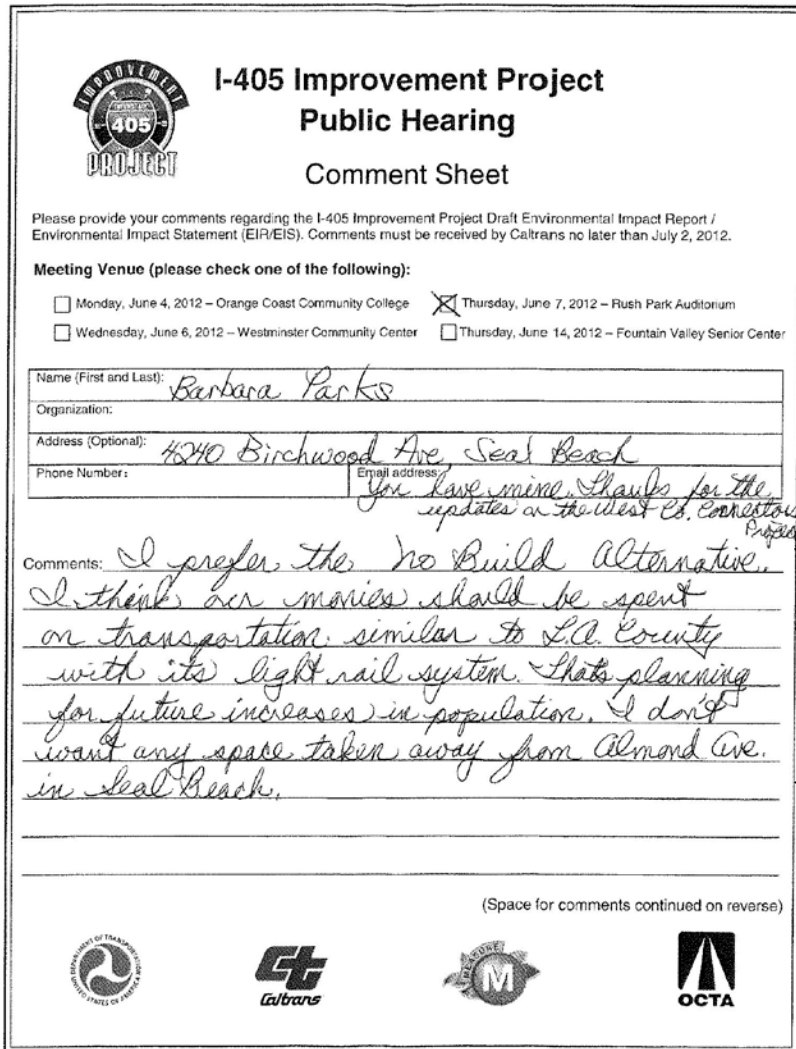 IMPROVEMENT
INTERSTATE
405
PROJECT
I-405 Improvement Project
Public Hearing
Comment Sheet
Please provide your comments regarding the I-405 Improvement Project Draft Environmental Impact Report /
Environmental Impact Statement (EIR/EIS). Comments must be received by Caltrans no later than July 2, 2012.
Meeting Venue (please check one of the following):
Monday, June 4, 2012 – Orange Coast Community College
Thursday, June 7, 2012 – Rush Park Auditorium
Wednesday, June 6, 2012 – Westminster Community Center
Thursday, June 14, 2012 – Fountain Valley Senior Center
Name (First and Last): Barbara Parks
Organization:
Address (Optional): 4240 Birchwood Ave, Seal Beach
Phone Number:
Email address: You have mine. Thanks for the
updates on the West Co. Connectors
Project
Comments: I prefer the No Build Alternative.
I think our monies should be spent
on transportation similar to L.A. County
with its light rail system. Thats planning
for future increases in population. I don't
want any space taken away from Almond Ave.
in Seal Beach.
(Space for comments continued on reverse)
DEPARTMENT OF TRANSPORTATION
UNITED STATES OF AMERICA
Caltrans
MEASURE
M
OCTA